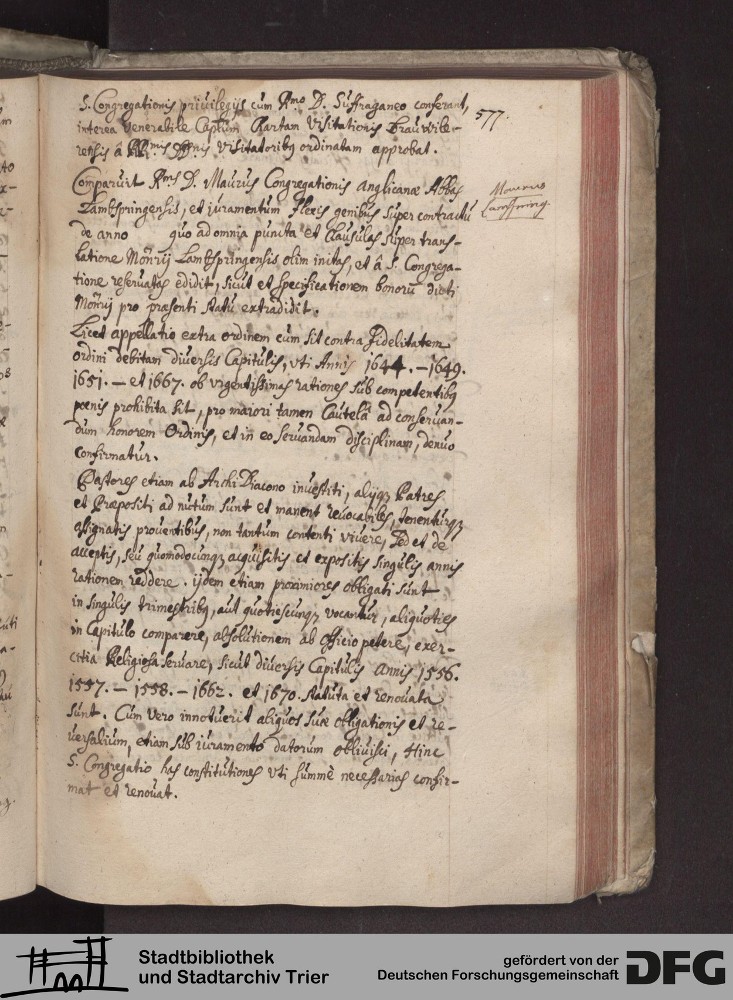 577.
S. Congregationis priuilegijs cum Rmo D. Suffraganeo conferant,
interea Venerabile Captum Chartam Visitationis Brauwile-
rensis â RRmis DDnis Visitatoribg ordinatam approbat.
Comparuit Rms D. Maurus Congregationis Anglicanæ Abbas
Maurus
Lamspring.
Lambspringensis, et iuramentum flexis genibus super contractû
de anno quo ad omnia puncta et clausulas super trans-
latione Monrij Lambspringensis olim initas, et â S. Congrega-
tione reseruatas edidit, sicut et specificationem bonorû dicti
Monrij pro præsenti statû extradidit.
Licet appellatio extra ordinem cum sit contra fidelitatem
ordini debitam diuersis Capitulis, vti Annis 1644. - 1649.
1651. - et 1667. ob vigentissimas rationes sub competentibg
pœnis prohibita sit, pro maiori tamen Cautelâ ad conseruan-
dum honorem Ordinis, et in eo seruandam disciplinam, denuo
confirmatur.
Pastores etiam ab ArchiDiacono inuestiti, alijqz Patres
et Præpositi ad nutum sunt et manent reuocabiles, tenenturqz
assignatis prouentibus, non tantum contenti viuere, sed et de
acceptis, seu quomodocunqz acquisitis et expositis singulis annis
rationem reddere. ijdem etiam proximiores obligati sunt
in singulis trimestribg, aut quotiescunqz vocantur, aliquoties
in Capitulo comparere, absolutionem ab officio petere, exer-
citia Religiosa seruare, sicut diuersis Capitulis Annis 1556.
1557. - 1558. - 1662. et 1670. statuta et renouata
sunt. Cum vero innotuerit aliquos suæ obligationis et re-
uersalium, etiam sub iuramento datorum obliuisci, Hinc
S. Congregatio has constitutiones vti summè necessarias confir-
mat et renouat.
Stadtbibliothek
und Stadtarchiv Trier
gefördert von der
Deutschen Forschungsgemeinschaft
DFG